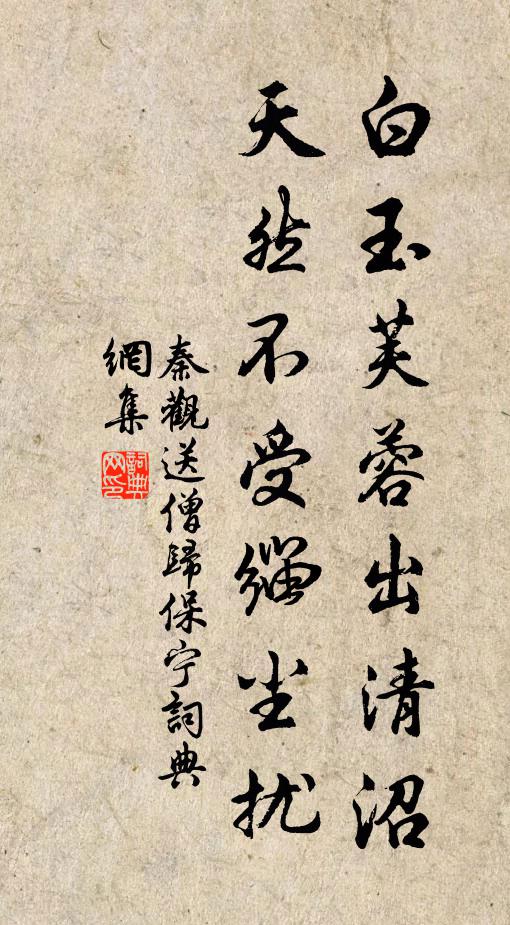 白玉芙蓉出清沼
天然不受缁尘扰
秦觀送僧歸保宁詞典
網集
詞典
网印